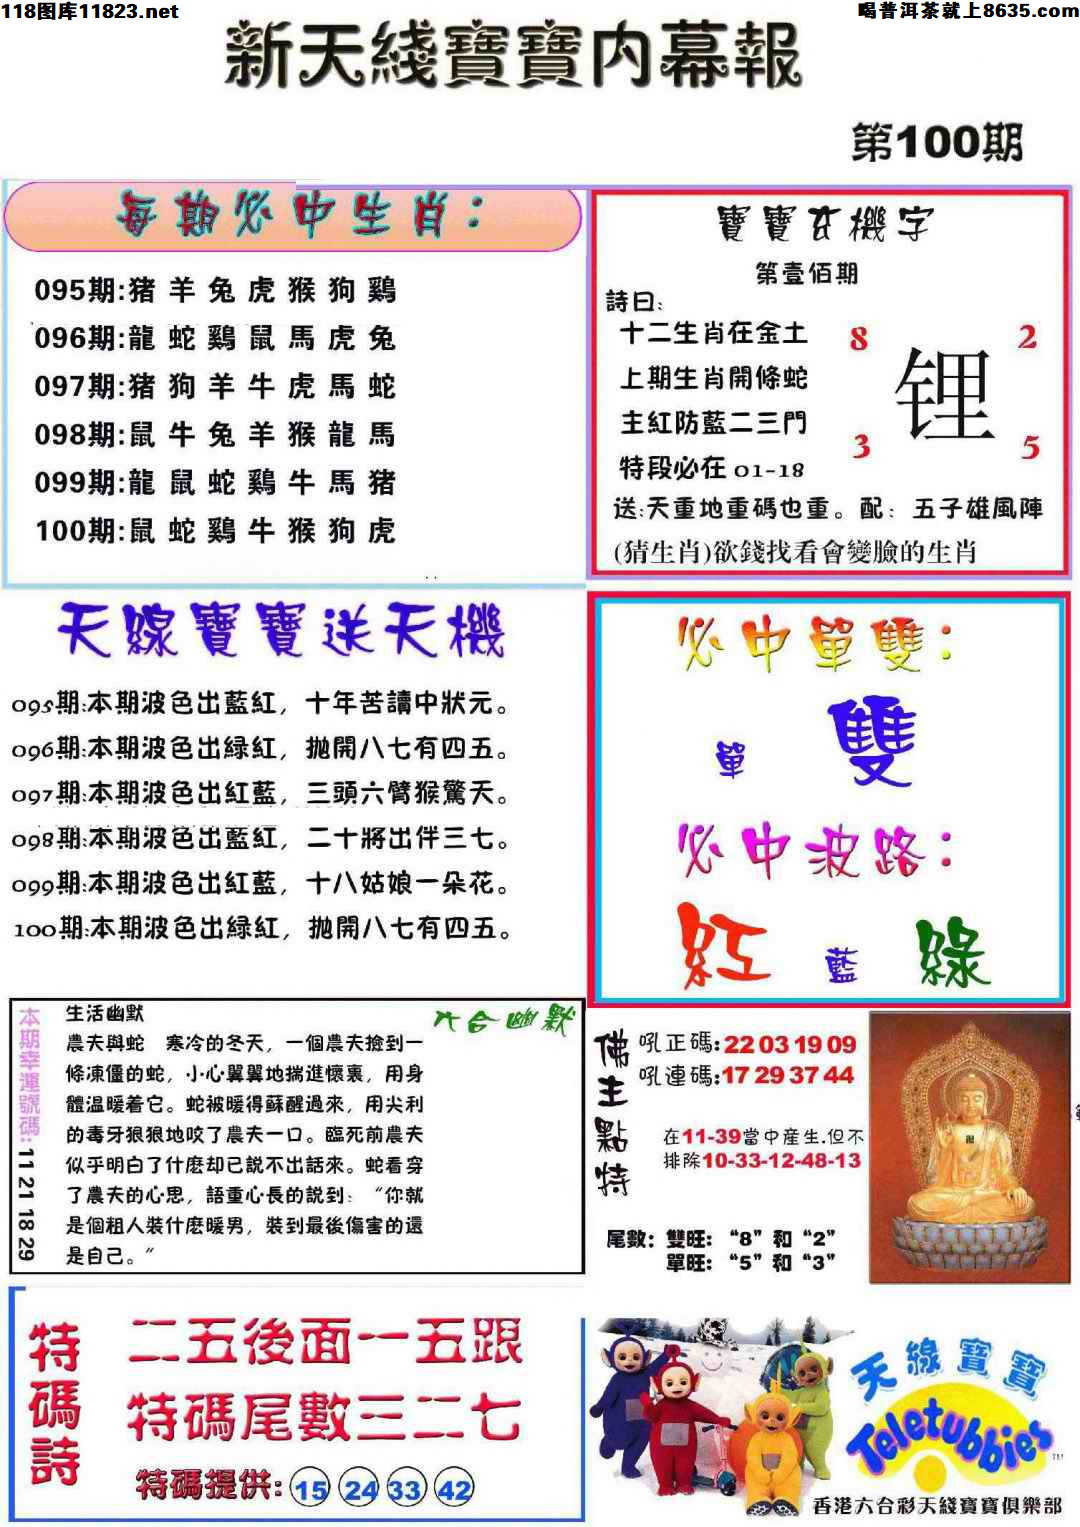 118图库11823.net
喝普洱茶就上8635.com
新天綫寶寶内幕報
第100期
每期必中生肖：
095期:猪羊兔虎猴狗鷄
096期:龍蛇鷄鼠馬虎兔
097期:猪狗羊牛虎馬蛇
098期:鼠牛兔羊猴龍馬
099期:龍鼠蛇鷄牛馬猪
100期:鼠蛇鷄牛猴狗虎
寶寶玄機字
第壹佰期
詩曰:
十二生肖在金土
上期生肖開條蛇
主紅防藍二三門
特段必在 01-18
8
2
锂
3
5
送:天重地重碼也重。配：五子雄風陣
(猜生肖)欲錢找看會變臉的生肖
天線寶寶送天機
095期:本期波色出藍紅，十年苦讀中狀元。
096期:本期波色出緑紅，拋開八七有四五。
097期:本期波色出紅藍，三頭六臂猴驚天。
098期:本期波色出藍紅，二十將出伴三七。
099期:本期波色出紅藍，十八姑娘一朵花。
100期:本期波色出緑紅，拋開八七有四五。
必中單雙：
單 雙
必中波路：
紅 藍 綠
本期幸運號碼:11 21 18 29
六合幽默
生活幽默
農夫與蛇　寒冷的冬天，一個農夫撿到一
條凍僵的蛇，小心翼翼地揣進懷裏，用身
體温暖着它。蛇被暖得蘇醒過來，用尖利
的毒牙狠狠地咬了農夫一口。臨死前農夫
似乎明白了什麽却已説不出話來。蛇看穿
了農夫的心思，語重心長的説到：“你就
是個粗人裝什麽暖男，裝到最後傷害的還
是自己。”
佛主點特
吼正碼:22 03 19 09
吼連碼:17 29 37 44
在11-39當中産生.但不
排除10-33-12-48-13
尾數：雙旺：“8”和“2”
單旺：“5”和“3”
特碼詩
二五後面一五跟
特碼尾數三二七
特碼提供: 15 24 33 42
天線寶寶
Teletubbies
TM
香港六合彩天綫寶寶俱樂部